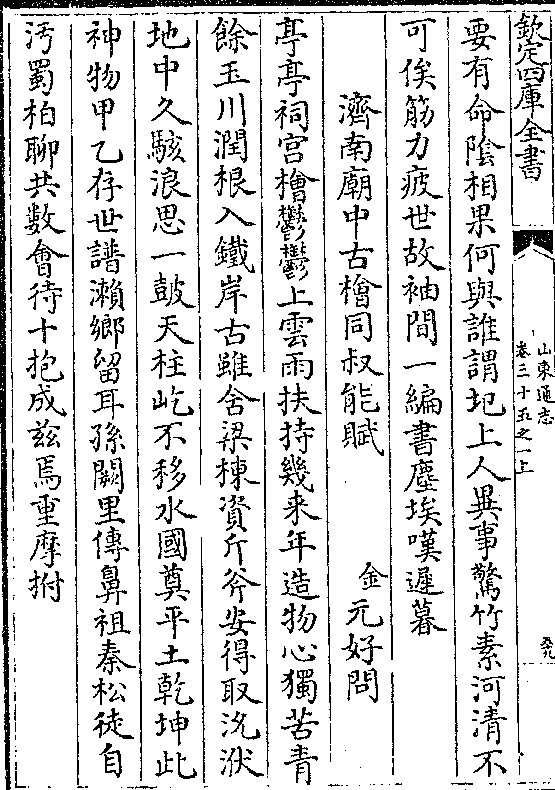 欽定四庫全書
山東通志
卷三十五之一上
要有命陰相果何與誰謂圯上人異事驚竹素河清不
可俟筋力疲世故袖間一編書塵埃嘆遲暮
濟南廟中古檜同叔能賦
金元好問
亭亭祠宫檜鬱鬱上雲雨扶持幾来年造物心獨苦青
餘玉川潤根入鐵岸古雖舍梁棟資斤斧安得取沇洑
地中久駭浪思一鼓天柱屹不移水國奠平土乾坤此
神物甲乙存世譜瀨鄉留耳孫闕里傳鼻祖秦松徒自
汚蜀柏聊共數會待十抱成兹焉重摩拊